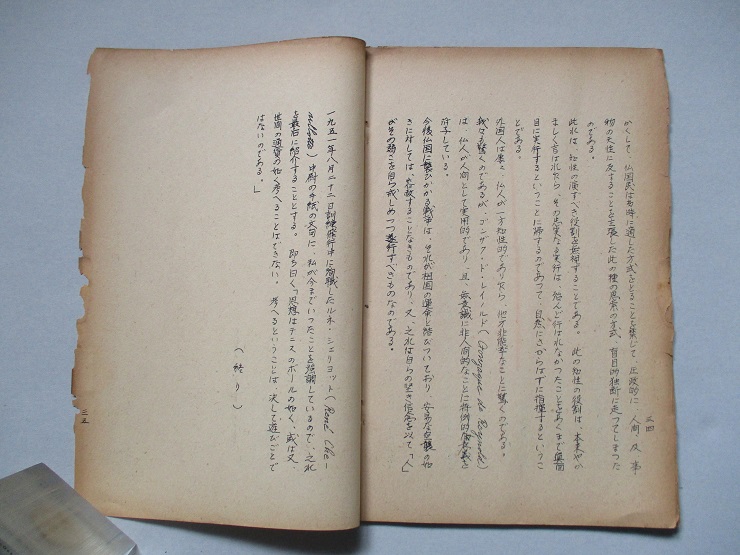 三四
かくして、仏国民は
に適した方式をとることを
じて、圧
的に、人間、及
事
物の天性に反することを主張した此の種の思索の方式、盲目的独断に走つてしまつた
のである。
此れは、知性の演ずべき役割を
することである。此の知性の役割は、本来や
ましく言はれたら、その忠実なる実行は、殆んど行はれなかつたことをあくまで真面
目に実行するということに帰するのであつて、自然にさからはずに指揮するというこ
とである。
外国人は屡々、仏人が一方知性的でありながら、他方非
なことに驚くのである。
我々も驚くのであるが、ゴンザク・ド・レイノルド(Gonzague de Reynold)
は、仏人が人間として実用的であり、且、無意識に非人間的なことに
的
を
している。
今後仏国に
ひかかる戦争は、それが祖国の運命と結びついており、安易な
の如
きに対しては、容赦することなきものであり、又、之れは自らの堅き信念を以て「人」
がその弱さを自ら戒しめつつ遂行すべきものなのである。
一九五一年八月二十二日訓練飛行中に殉職したルネ・シェリヨット(René Che-
)中尉の手紙の文句に、私が今までいつたことを強調しているので、之れ
を最后に紹介することとする。即ち曰く「思想はテニスのボールの如く、或は又、
世間の通貨の如く考へることはできない。考へるということは、決して遊びごとで
はないのである。」
(終り)
三五